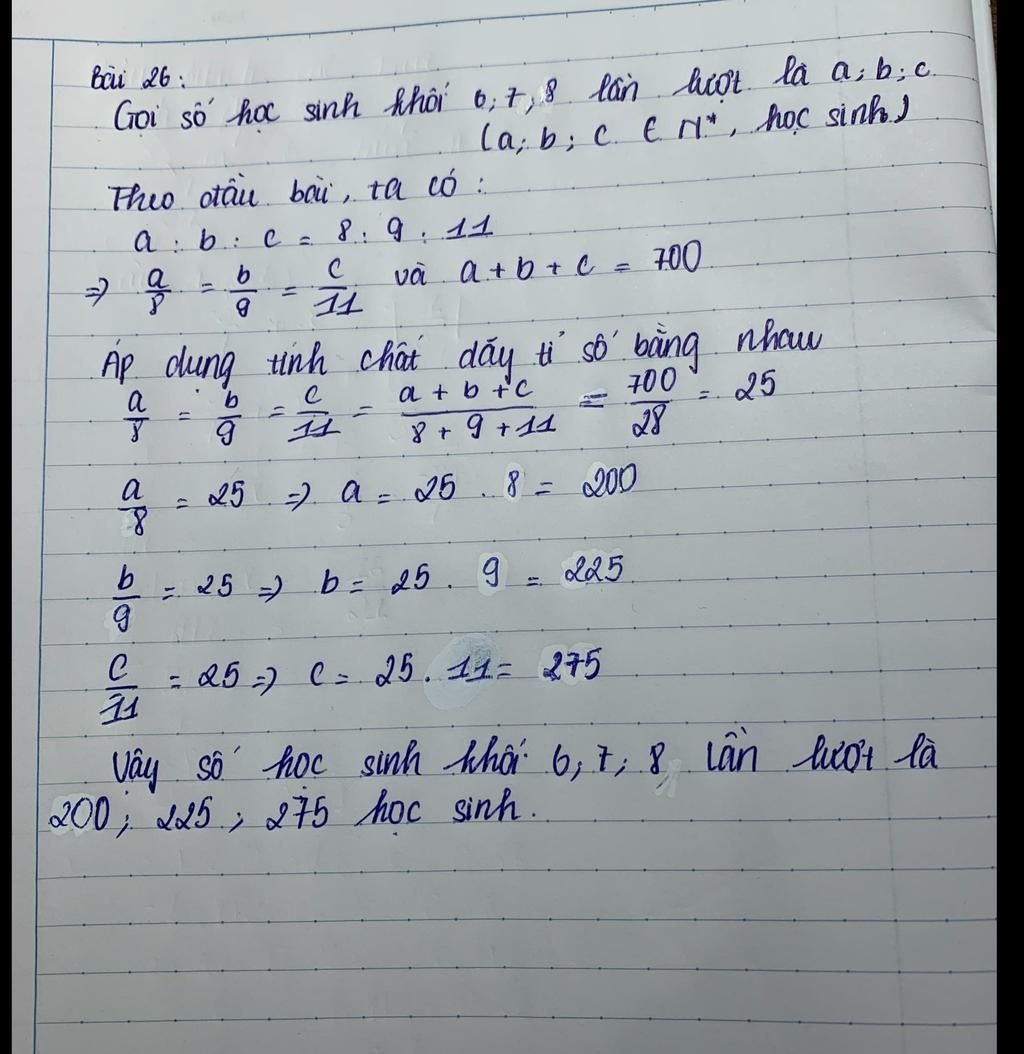 Bài 26:
Gọi số học sinh khối 6; 7; 8 lần lượt là a; b; c.
(a; b; c ∈ N*, học sinh)
Theo đầu bài, ta có:
a : b : c = 8 : 9 : 11
=> a/8 = b/9 = c/11 và a + b + c = 700
Áp dụng tính chất dãy tỉ số bằng nhau
a/8 = b/9 = c/11 = (a + b + c)/(8 + 9 + 11) = 700/28 = 25
a/8 = 25 => a = 25 . 8 = 200
b/9 = 25 => b = 25 . 9 = 225
c/11 = 25 => c = 25 . 11 = 275
Vậy số học sinh khối 6; 7; 8 lần lượt là
200; 225; 275 học sinh.